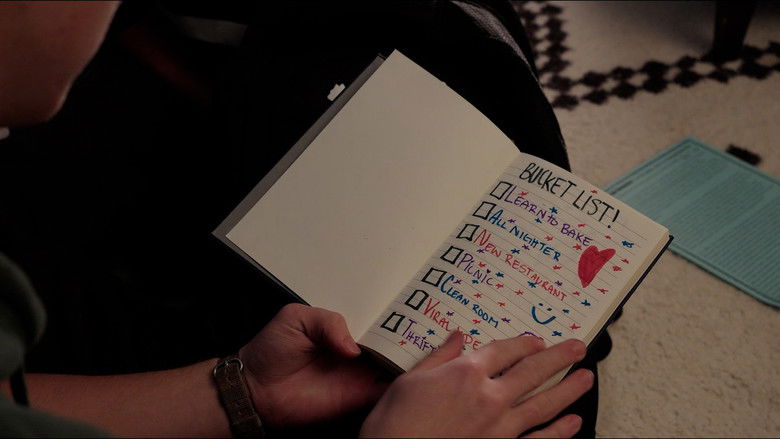 BUCKET LIST!
LEARN TO BAKE
ALL NIGHTER
NEW RESTAURANT
PICNIC
CLEAN ROOM
VIRAL